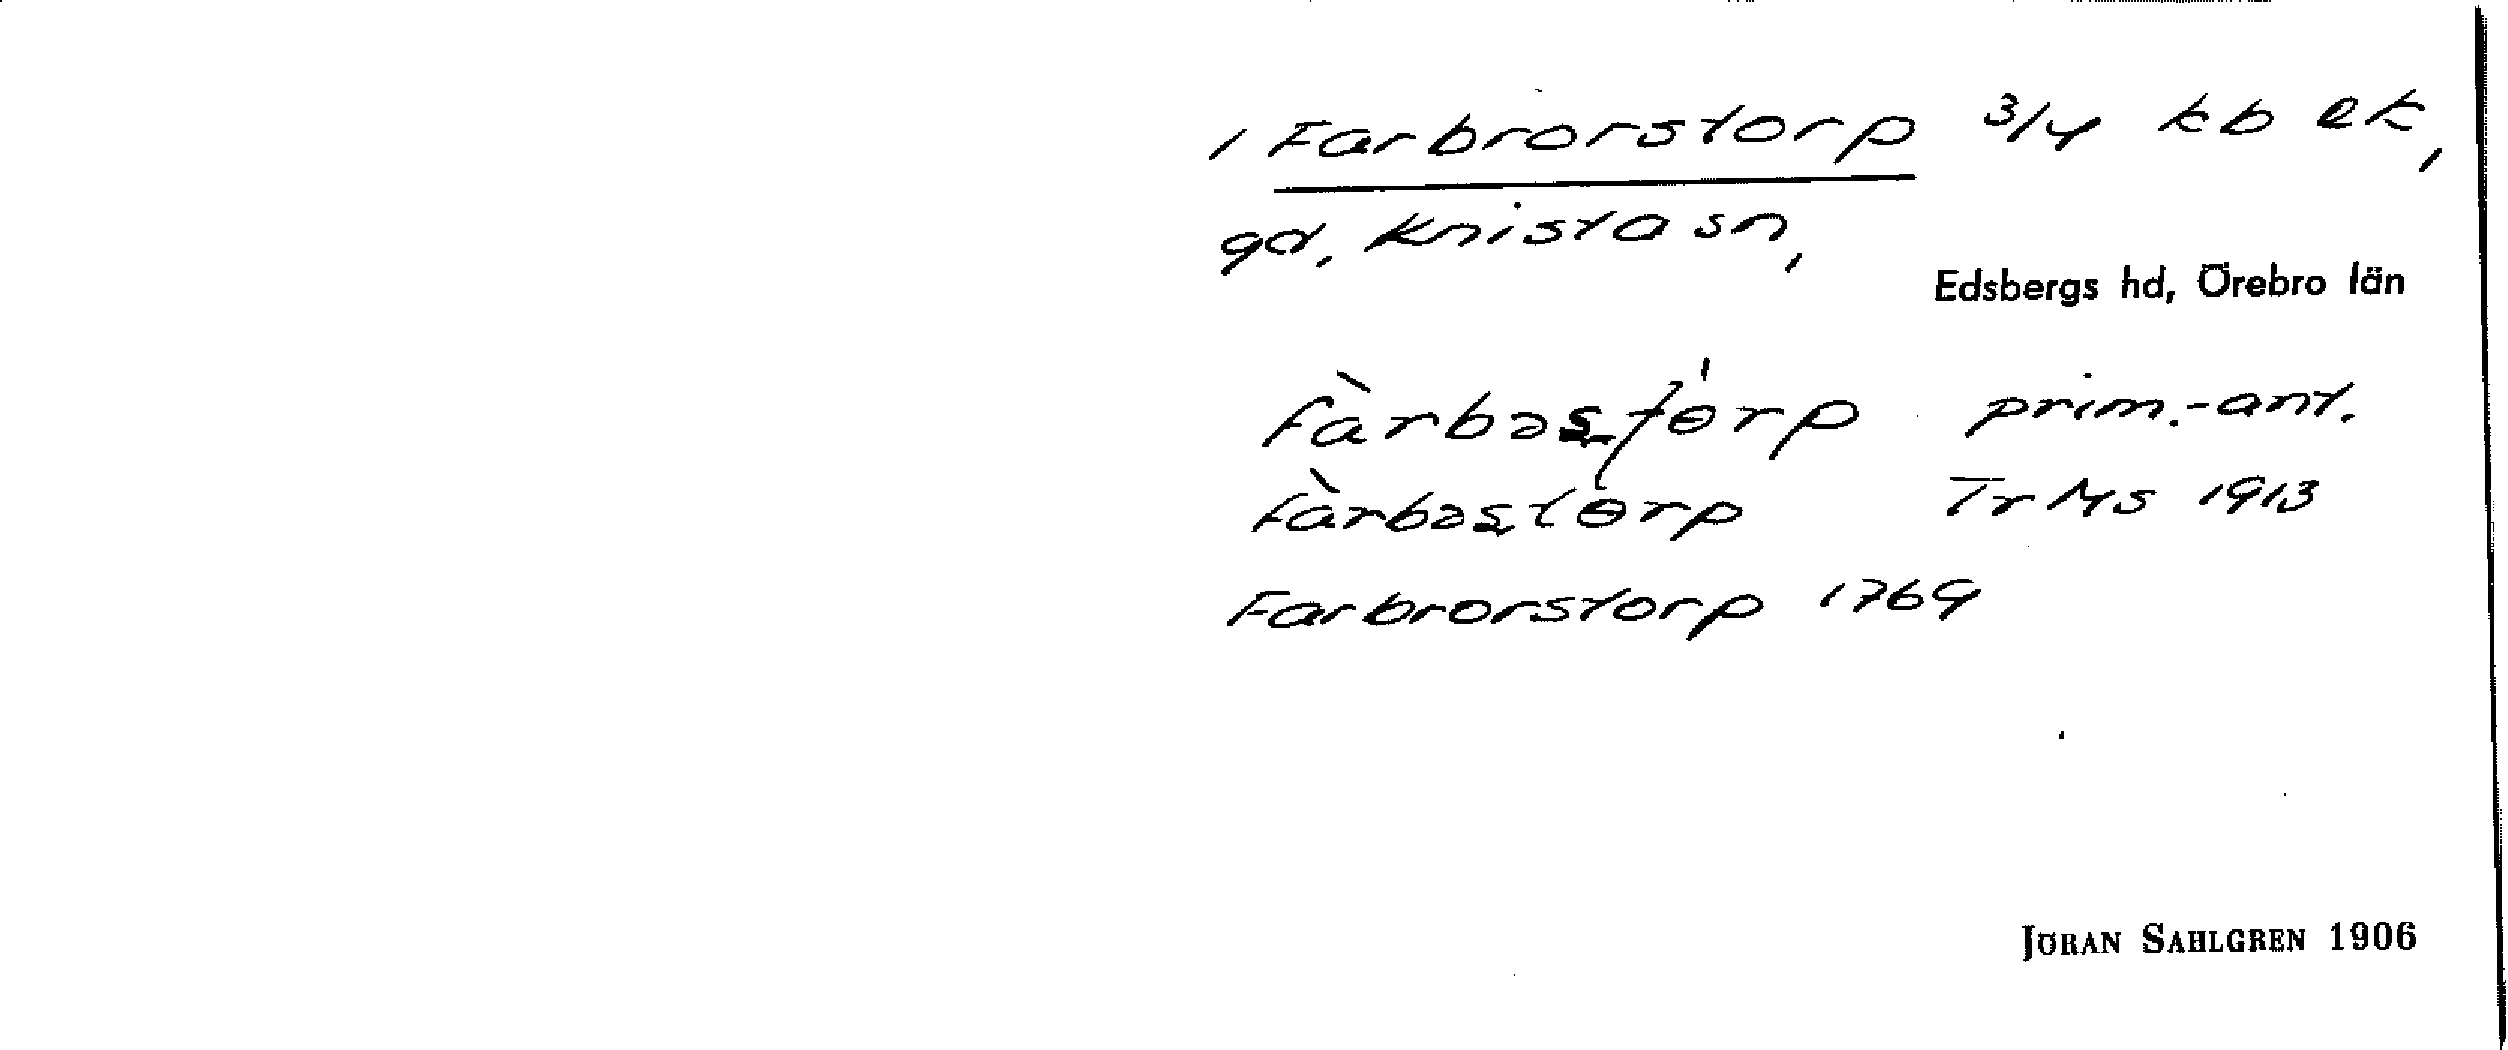 1 Farbrorstorp 3/4 kb ek,
gd, Knista sn,
Edsbergs hd, Örebro län
fàrbəstɵ́rp prim.-ant.
fàrbəstɵrp Tr Ms 1913
Farbrorstorp 1769
JÖRAN SAHLGREN 1906